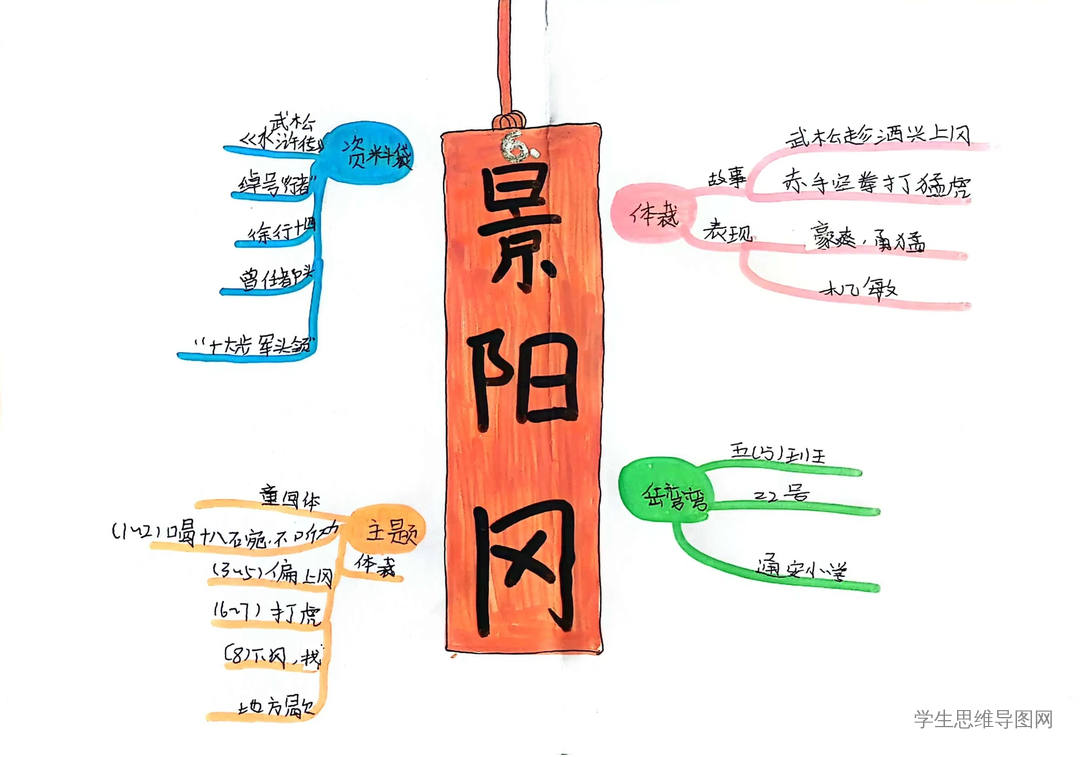 6.
景阳冈
资料袋
武松
《水浒传》
绰号“行者”
徐行十四
曾任都头
“十大步军头领”
体裁
故事
武松趁酒兴上冈
赤手空拳打猛虎
表现
豪爽、勇猛
机敏
主题
章回体
体裁
(1~2)喝十八碗,不听劝
(3~5)偏上冈
(6~7)打虎
(8)下冈,找
地方歇
岳弯弯
五(5)班
22号
通安小学
学生思维导图网